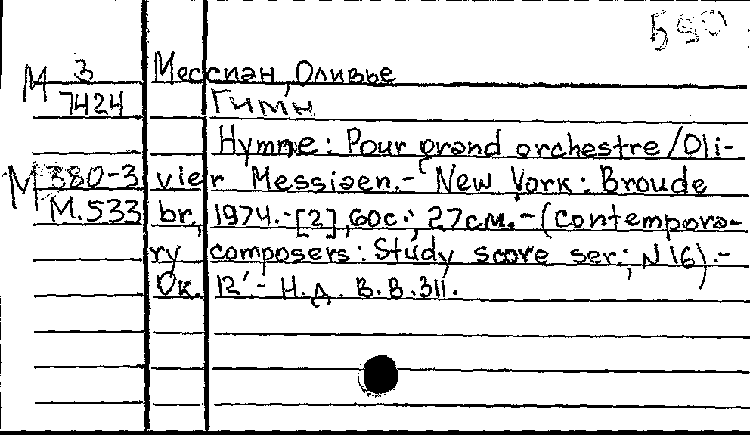 580
М 3 Мессиан, Оливье
7424 Гимн
Hymne: Pour grand orchestre / Oli-
М 380-3 vier Messiaen.- New York: Broude
М.533 br, 1974.-[2], 60с.; 27см.-(Contempora-
ry composers: Study score ser.; N 16).-
Ок. 12'.- Н.Д. B.B.311.